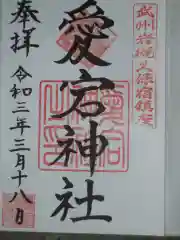 武州岩槻久保宿鎮座
愛宕神社
奉拝
令和三年三月十八日